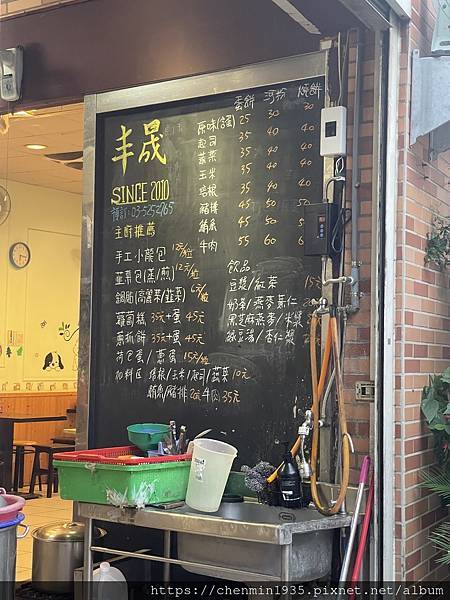 丰晟
SINCE 2010
預訂:03-5252965
主廚推薦
手工小籠包 12元/粒
韭菜包(蒸/煎) 12元/粒
鍋貼(高麗菜/韭菜) 6元/粒
蘿蔔糕 35元+蛋 45元
蔥抓餅 35元+蛋 45元
荷包蛋/蔥蛋 15元/粒
加料區 培根/玉米/起司/蔬菜 10元
鮪魚/豬排 20元 牛肉 35元
蛋餅 河粉 燒餅
原味(蛋) 25 30 30
起司 35 40 40
蔬菜 35 40 40
玉米 35 40 40
培根 35 40 40
豬排 45 50 50
鮪魚 45 50 50
牛肉 55 60 60
飲品
豆漿/紅茶 15元
奶茶/燕麥薏仁 20元
黑芝麻燕麥/米漿
綠豆湯/杏仁漿
https://chenmin1935.pixnet.net/album